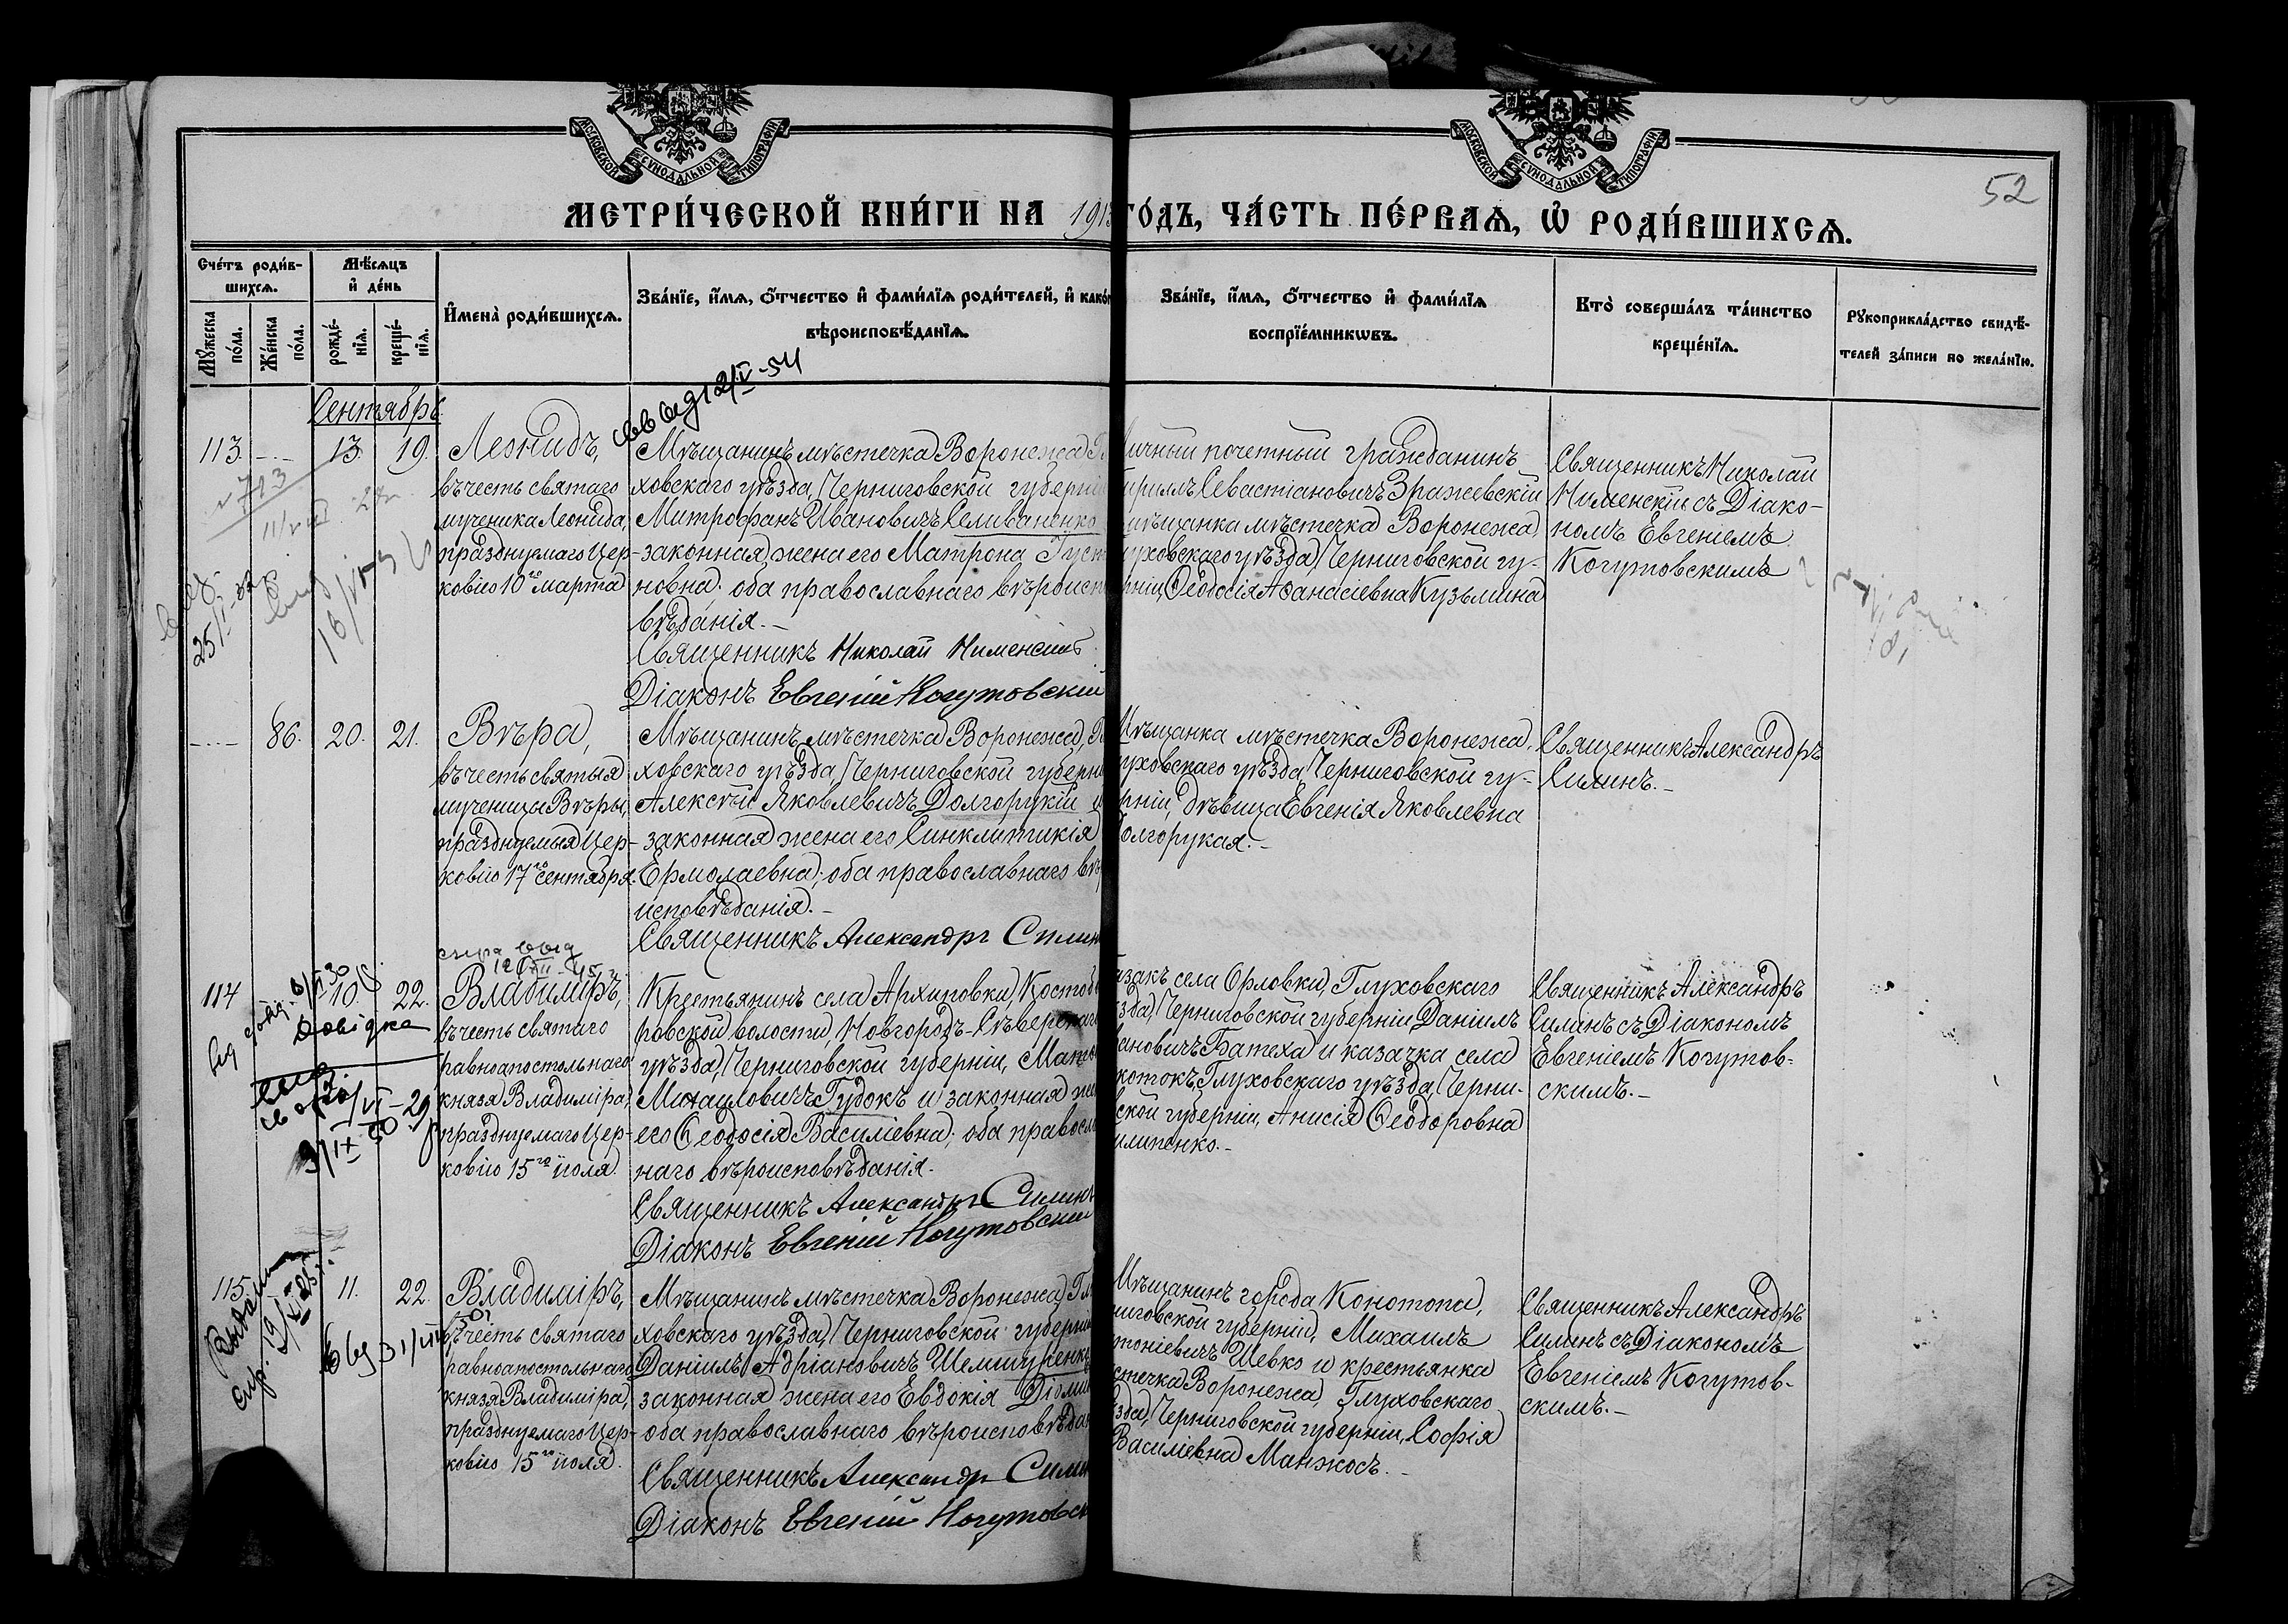 МОСКОВСКОЙ СѴНОДАЛЬНОЙ ТИПОГРАФІИ
МОСКОВСКОЙ СѴНОДАЛЬНОЙ ТИПОГРАФІИ
52
МЕТРИ́ЧЕСКОЙ КНИ́ГИ НА 1913
ГО́ДЪ, ЧА́СТЬ ПЕ́РВАѦ, Ѡ҆ РОДИ́ВШИХСѦ.
Сче́тъ роди́в-
шихсѧ.
Мꙋ́жеска
по́ла.
Же́нска
по́ла.
Мѣ́сѧцъ
и҆ де́нь
рожде́-
нїѧ.
креще́-
нїѧ.
И҆мена̀ роди́вшихсѧ.
Зва́нїе, и҆́мѧ, ѻ҆́тчество и҆ фами́лїѧ роди́телей, и҆ како́г
вѣроисповѣ́данїѧ.
Зва́нїе, и҆́мѧ, ѻ҆́тчество и҆ фами́лїѧ
воспрїе́мникѡвъ.
Кто̀ соверша́лъ та́инство
креще́нїѧ.
Рꙋкоприкла́дство свидѣ́-
телей за́писи по жела́нїю.
Сентябрь
113. - - - 13. 19.
Леонидъ,
въ честь святаго
мученика Леонида,
празднуемаго Цер-
ковію 10го марта
Мѣщанинъ мѣстечка Воронежа Г
ховскаго уѣзда, Черниговской губерніи
Митрофанъ Ивановичъ Селиваненко
законная жена его Матрона Густ
новна; оба православнаго вѣроиспо
вѣданія.-
Священникъ Николай Нименскій
Діаконъ Евгеній Когутовскій
ичный почетный гражданинъ
ириллъ Севастіановичъ Зражевскій
мѣщанка мѣстечка Воронежа
уховскаго уѣзда, Черниговской гу-
рніи, Ѳеодосія Аѳанасіевна Кузьмина
Священникъ Николай
Нименскій съ Діако-
номъ Евгеніемъ
Когутовскимъ
- - - 86. 20. 21.
Вѣра,
въ честь святыя
мученицы Вѣры,
празднуемыя Цер-
ковію 17го сентября.
Мѣщанинъ мѣстечка Воронежа, Г
ховскаго уѣзда, Черниговской губерн
Алексѣй Яковлевичъ Долгорукій и
законная жена его Синклитикія
Ермолаевна; оба православнаго вѣ
исповѣданія.-
Священникъ Александръ Силин
Мѣщанка мѣстечка Воронежа,
уховскаго уѣзда, Черниговской гу-
рніи, дѣвица Евгенія Яковлевна
олгорукая.-
Священникъ Александръ
Силинъ.-
114 10. 22.
Довідка
Владиміръ,
въ честь святаго
равноапостольнаго
князя Владиміра,
празднуемаго Цер-
ковію 15го іюля.
Крестьянинъ села Архиповки, Костоб
ровской волости, Новгородъ-Сѣверскаг
уѣзда, Черниговской губерніи, Мат
Михаиловичъ Гудокъ и законная же
его Ѳеодосія Василіевна; оба правосл
наго вѣроисповѣданія.
Священникъ Александръ Силинъ
Діаконъ Евгеній Когутовскій
азакъ села Орловки, Глуховскаго
зда, Черниговской губерніи Даніилъ
ановичъ Батеха и казачка села
котокъ Глуховскаго уѣзда, Черни-
ской губерніи, Анисія Ѳеодоровна
илипенко.-
Священникъ Александръ
Силинъ съ Діакономъ
Евгеніемъ Когутов-
скимъ.-
115. 11. 22.
Владиміръ,
въ честь святаго
равноапостольнаго
князя Владиміра,
празднуемаго Цер-
ковію 15го іюля.
Мѣщанинъ мѣстечка Воронежа, Гл
ховскаго уѣзда, Черниговской губерні
Даніилъ Адріановичъ Шемшуренк
законная жена его Евдокія
оба православнаго вѣроисповѣда
Священникъ Александръ Силин
Діаконъ Евгеній Когутовск
Мѣщанинъ города Конотопа,
ниговской губерніи, Михаилъ
тоніевичъ Шевко и крестьянка
стечка Воронежа, Глуховскаго
зда, Черниговской губерніи, Софія
Василіевна Манжосъ.-
Священникъ Александръ
Силинъ съ Діакономъ
Евгеніемъ Когутов-
скимъ.-